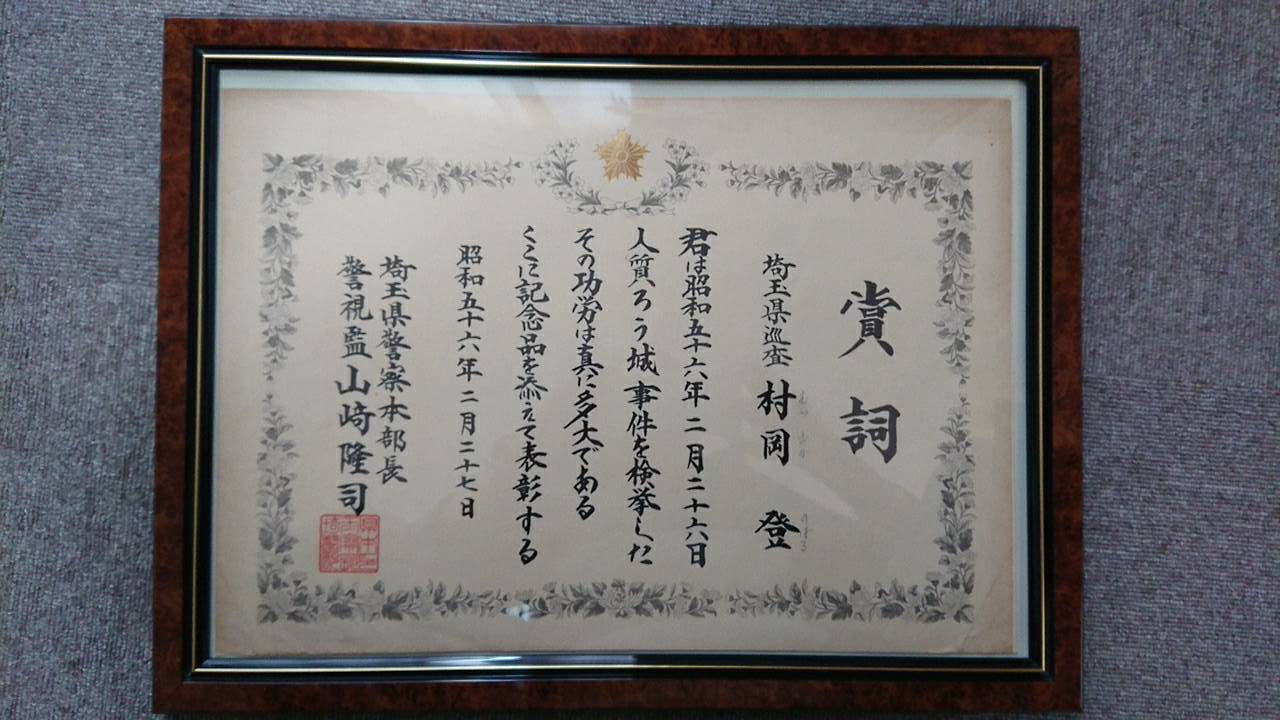 賞詞
埼玉県巡査 村岡 登
君は昭和五十六年二月二十六日
人質ろう城事件を検挙した
その功労は真に多大である
ここに記念品を添えて表彰する
昭和五十六年二月二十七日
埼玉県警察本部長
警視監 山﨑隆司